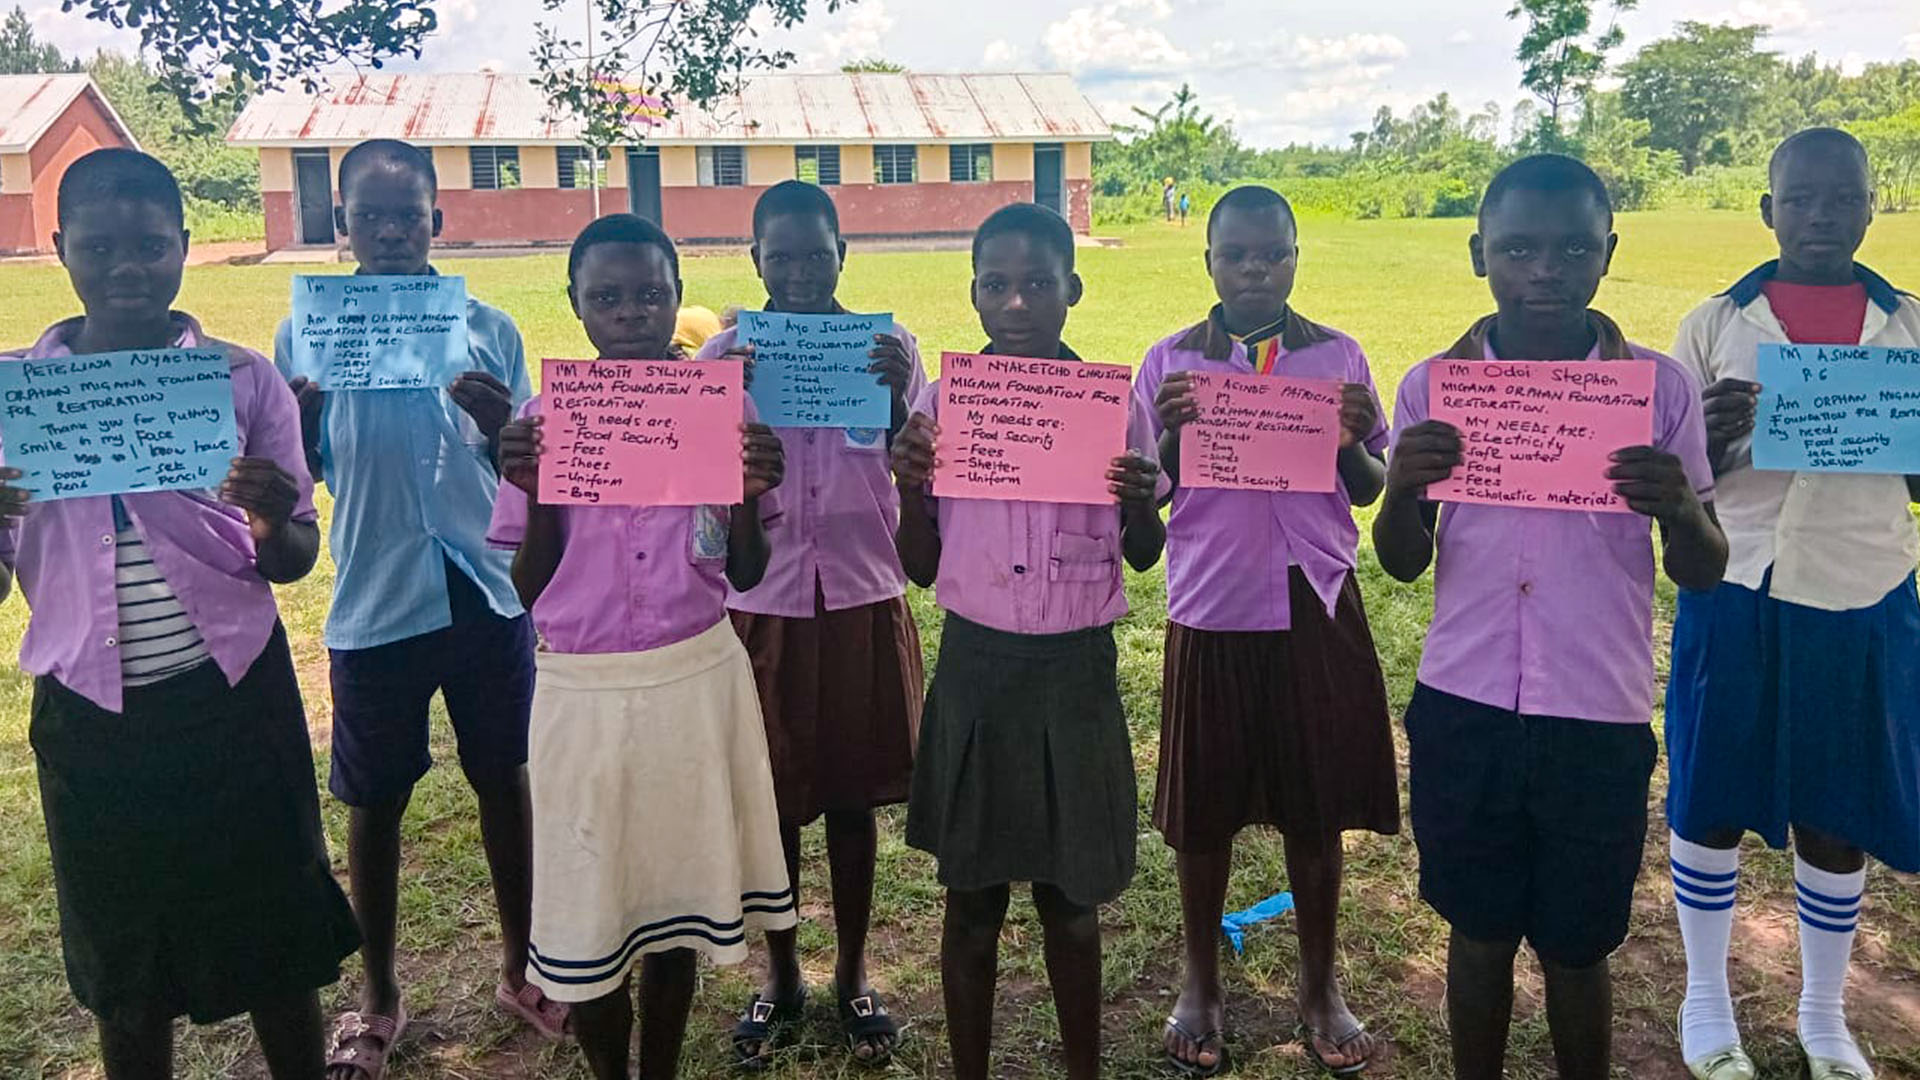 PETELINA NYACHWO
ORPHAN MIGANA FOUNDATION
FOR RESTORATION
Thank you for putting
smile in my face
I know have
- books - set
- pens - pencils
I'M OWOR JOSEPH
P7
AM ORPHAN MIGANA
FOUNDATION FOR RESTORATION
MY NEEDS ARE:
- Fees
- Bags
- Shoes
- Food security
I'M AKOTH SYLVIA
MIGANA FOUNDATION FOR
RESTORATION.
My needs are:
- Food security
- Fees
- Shoes
- Uniform
- Bag
I'm AYO JULIAN
MIGANA FOUNDATION
RESTORATION
- Scholastic
- food
- Shelter
- Safe water
- Fees
I'M NYAKETCHO CHRISTINE
MIGANA FOUNDATION FOR
RESTORATION.
My needs are:
- Food security
- Fees
- Shelter
- Uniform
I'M ASINDE PATRICIA
P7
ORPHAN MIGANA
FOUNDATION RESTORATION.
My needs:
- Bag
- Shoes
- Fees
- Food security
I'M Odoi Stephen
MIGANA ORPHAN FOUNDATION
RESTORATION.
MY NEEDS ARE:
- Electricity
- Safe water
- Food
- Fees
- Scholastic materials
I'M ASINDE PATR
P.6
AM ORPHAN MIGAN
FOUNDATION FOR RESTO
My needs
Food security
Safe water
Shelter